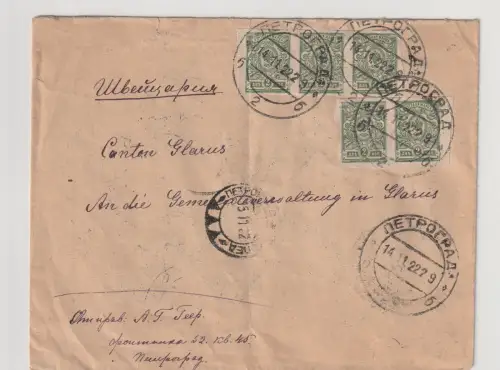 ПЕТРОГРАД
14.11.22.2-9
ПЕТРОГРАД
ПЕТРОГРАД
Швейцария
Canton Glarus
An die Gemeindeverwaltung in Glarus
ПЕТРОГРАД
14.11.22.2-9
5
Отправ. А. Г. Геер.
Фонтанка 52. кв. 45
Петроград